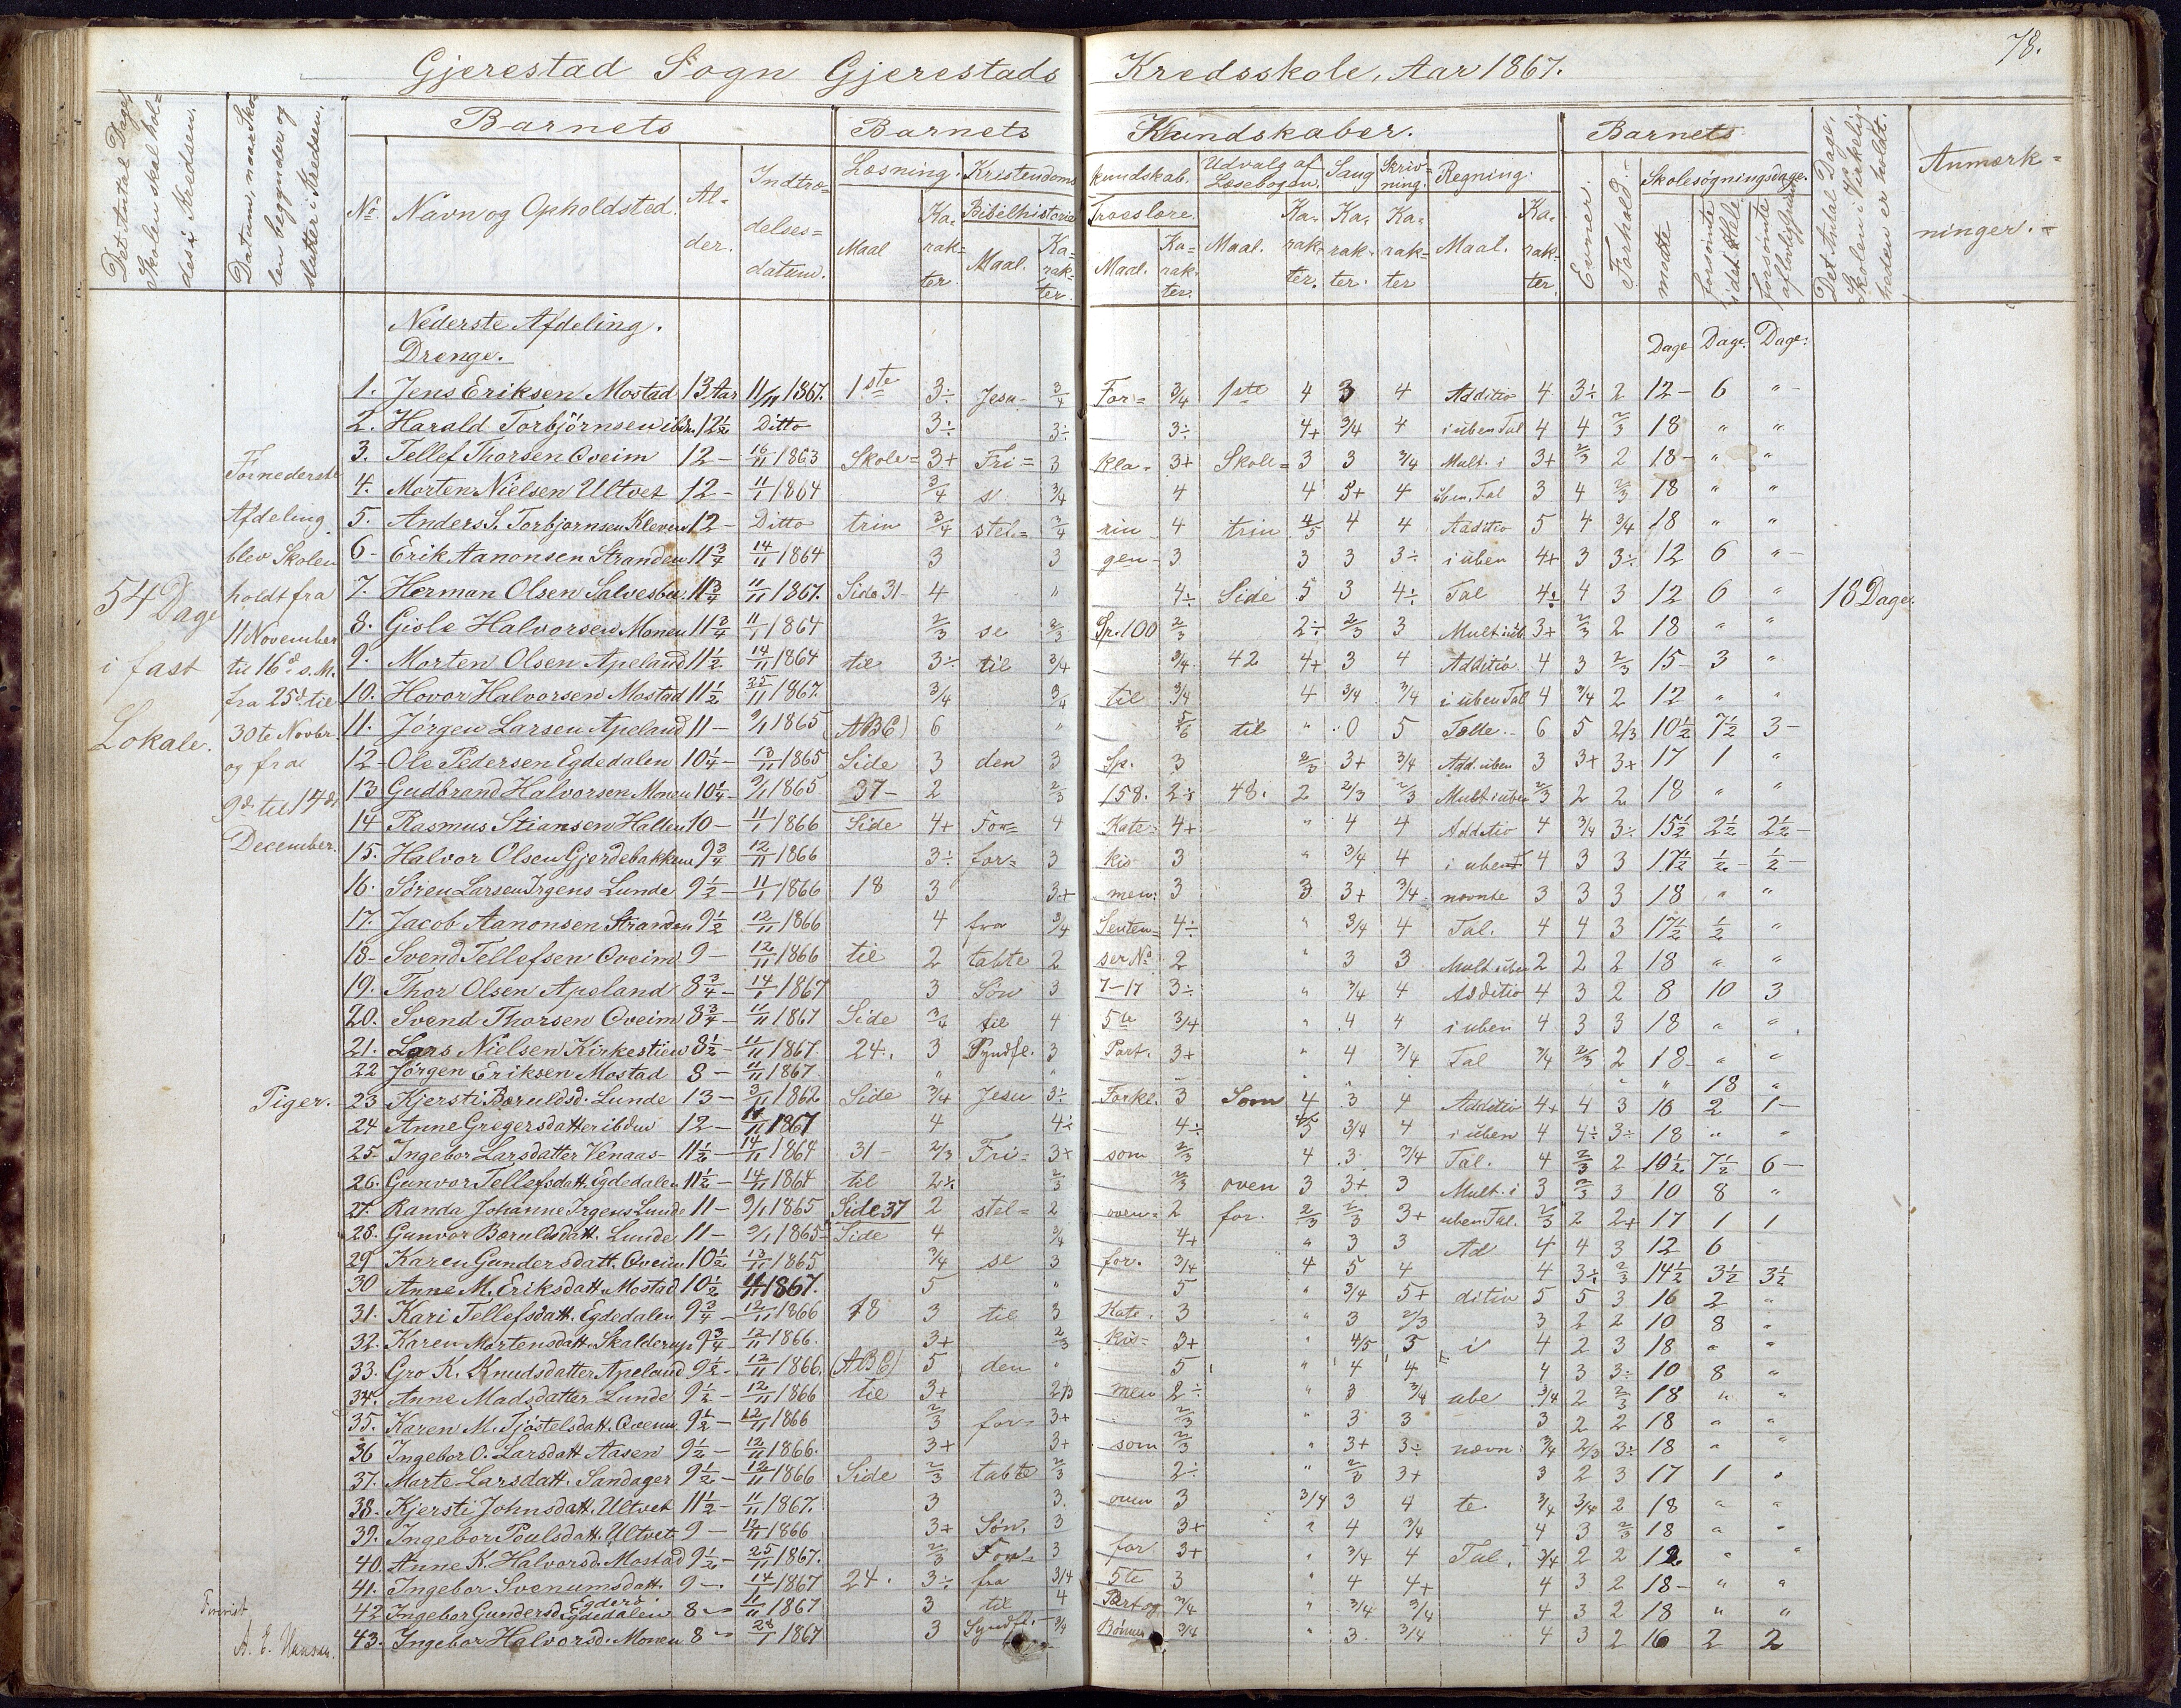 78.
Gjerestad Sogn Gjerestads Kredsskole, Aar 1867.
Det Antal Dage, Skolen skal holdes i Kredsen.
Datum, naar Skolen begynder og slutter i Kredsen.
Barnets
Barnets Kundskaber.
Barnets
Det Antal Dage, Skolen i Virkeligheden er holdt.
Anmærkninger.
No. Navn og Opholdsted. Alder. Indtrædelsesdatum.
Læsning. Kristendomskundskab. Udvalg af Læsebogen. Sang Skrivning. Regning.
Evner. Forhold. Skolesøgningsdage.
Bibelhistorie Troeslære.
Maal Karakter. Maal. Karakter. Maal. Karakter. Maal. Karakter. Karakter. Karakter Maal. Karakter.
mødte forsømte i det Hele forsømte
Nederste Afdeling.
Drenge.
Dage Dage. Dage.
1. Jens Eriksen Mostad 13 Aar 11/11 1867. 1ste 3÷ Jesu 3/4 For= 3/4 1ste 4 3 4 Additio 4 3÷ 2 12 – 6 "
2. Harald Torbjörnsen ibdn. 12½ Ditto 3÷ 3÷ 3÷ 4+ 3/4 4 i uben Tal 4 4 2/3 18 " "
3. Tellef Thorsen Qveim 12 – 16/11 1863 Skole= 3+ Fri= 3 kla= 3+ Skole= 3 3 3/4 Mult. i 3+ 2/3 2 18 – " "
4. Morten Nielsen Ultvet 12 – 11/1 1864 3/4 s 3/4 4 4 3+ 4 üben. Tal 3 4 2/3 18 " "
5. Anders S. Torbjørnsen Kleven 12 – Ditto trin 3/4 stel= 3/4 rin 4 trin 4/5 4 4 Additio 5 4 3/4 18 " "
6 – Erik Aanonsen Stranden 11¾ 14/11 1864 3 3 gen – 3 3 3 3÷ i üben 4+ 3 3÷ 12 6 "
7. Herman Olsen Salvesbu. 11¾ 11/11 1867. Side 31 – 4 " 4÷ Side 5 3 4÷ Tal 4÷ 4 3 12 6 " 18 Dage.
8. Gisle Halvorsen Monen 11¾ 11/1 1864 2/3 se 2/3 Sp. 100 2/3 2÷ 2/3 3 Mult i üb. 3+ 2/3 2 18 " "
9. Morten Olsen Apeland 11½ 14/11 1864 til 3÷ til 3/4 3/4 42 4+ 3 4 Additio. 4 3 2/3 15 – 3 "
10. Hovor Halvorsen Mostad 11½ 25/11 1867. 3/4 3/4 til 3/4 4 3/4 3/4 i uben Tal 4 3/4 2 12 " "
11. Jörgen Larsen Apeland 11 – 9/1 1865 (ABC) 6 " 5/6 til " 0 5 Tælle. 6 5 2/3 10½ 7½ 3 –
12 – Ole Pedersen Egdedalen 10¼ – 13/11 1865 Side 3 den 3 Sp. 3 2/3 3+ 3/4 Add. uben 3 3+ 3+ 17 1 "
13 Gudbrand Halvorsen Monen 10¼ – 9/1 1865 37 – 2 2/3 158. 2÷ 48. 2 2/3 2/3 Mult i uben 2/3 2 2 18 " "
14 Rasmus Stiansen Hallen 10 – 11/1 1866 Side 4+ For= 4 Kate= 4+ " 4 4 Additio 4 3/4 3÷ 15½ 2½ 2½ –
15. Halvor Olsen Gjerdebakken 9¾ 12/11 1866 3÷ for= 3 kis 3 " 3/4 4 i uben 4 3 3 17½ ½ – ½ –
16. Sören Larsen Irgens Lunde 9½ – 11/1 1866 18 3 3+ men: 3 3 3+ 3/4 nævnte 3 3 3 18 " "
17. Jacob Aanonsen Stranden 9½ 12/11 1866 4 fra 3/4 Senten= 4÷ " 3/4 4 Tal. 4 4 3 17½ ½ "
18 – Svend Tellefsen Qveim 9 – 12/11 1866 til 2 tabte 2 ser No. 2 " 3 3 Mult uben 2 2 2 18 " "
19. Thor Olsen Apeland 8¾ – 14/1 1867 3 Søn 3 7–17 3÷ " 3/4 4 Additio 4 3 2 8 10 3
20. Svend Thorsen Qveim 8¾ – 11/11 1867 Side 3/4 til 4 5te 3/4 " 4 4 i uben 4 3 3 18 " "
21. Lars Nielsen Kirkestien 8½ – 11/11 1867. 24. 3 Syndfl. 3 Part. 3+ " 4 3/4 Tal 3/4 2/3 2 18 – " "
22 Jörgen Eriksen Mostad 8 – 11/11 1867. " " " " " 18 "
Piger.
23 Kjersti Baruldsd. Lunde 13 – 3/11 1862 Side 3/4 Jesu 3÷ Forkl. 3 Som 4 3 4 Additio 4+ 4 3 16 2 1 –
24 Anne Gregersdatter ibdn 12 – 11/11 1867 4 4÷ 4÷ 3/4 4 i üben 4 4÷ 3÷ 18 " "
25 – Ingebor Larsdatter Venaas – 11½ – 14/11 1864 31 – 2/3 Fri= 3+ som 2/3 4 3 3/4 Tal. 4 2/3 2 10½ 7½ 6 –
26. Gunvor Tellefsdatt. Egdedalen 11½ – 14/11 1864 til 2÷ 2/3 2/3 oven 3 3+ 3 Mult. i 3 2/3 3 10 8 "
27. Randa Johanne Irgens Lunde 11 – 9/1 1865 Side 37 2 stel= 2 oven= 2 for. 2/3 2/3 3+ uben Tal. 2/3 2 2+ 17 1 1
28. Gunvor Baruldsdatt. Lunde 11 – 9/1 1865 – Side 4 3/4 4+ " 3 3 Ad 4 4 3 12 6
29 Karen Gundersdatt. Qveim 10½ 13/11 1865 3/4 se 3 for. 3/4 4 5 4 4 3÷ 2/3 14½ 3½ 3½
30 Anne M. Eriksdatt. Mostad 10½ 11/11 1867. 5 " 5 " 3/4 5+ ditio 5 5 3 16 2 "
31. Kari Tellefsdatt. Egdedalen 9¾ – 12/11 1866 18 3 til 3 Kate. 3 " 3 2/3 3 2 2 10 8 "
32. Karen Mortensdatt. Skalderup 9¾ – 12/11 1866. 3+ 2/3 kis= 3+ " 4/5 5 i 4 2 3 18 " "
33. Gro K. Knudsdatter Apeland 9½ – 12/11 1866. (ABC) 5 den " 5 " 4 4 4 3 3÷ 10 8 "
34. Anne Madsdatter Lunde 9½ – 12/11 1866 til 3+ 2/3 men 2÷ " 3 3/4 ube 3/4 2 2/3 18 " "
35. Karen M. Tjöstelsdatt. Qveim. 9½ – 12/11 1866 2/3 for= 3+ 2/3 " 3 3 3 2 2 18 " "
36 Ingebor O. Larsdatt Aasen 9½ – 12/11 1866. 3+ 3+ som 2/3 " 3+ 3÷ nævn= 3/4 2/3 3÷ 18 " "
37. Marte Larsdatt. Sandager 9½ – 12/11 1866 Side 2/3 tabte 2/3 2÷ " 2/3 3+ 3 2 3 17 1 "
38. Kjersti Johnsdatt. Ultvet 11½ – 11/11 1867. 3 3. oven 3 3/4 3 4 te. 3/4 3/4 2 18 " "
39. Ingebor Poulsdatt. Ultvet 9 – 12/11 1866 3+ Søn, 3 3+ " 4 3/4 4 3 2/3 18 " "
40. Anne K. Halvorsd. Mostad 9½ – 25/11 1867. 2/3 For= 3 for 3+ " 3/4 4 Tal. 3/4 2 2 12 " "
41. Ingebor Svenumsdatt. 9 – 14/1 1867 24. 3÷ fra 3/4 5te 3 " 4 4+ 4 3 2 18 – " "
42 Ingebor Gundersd. Egdedalen 8 – 11/11 1867 3 til 4 Part og 3/4 " 3/4 3/4 4 3 2 18 " "
43. Ingebor Halvorsd. Monen 8 – 28/1 1867 3 Syndfl. – 3/4 Bönner 3/4 " 3 3/4 4 3 2 16 2 2
54 Dage
i fast
Lokale.
For nederste
Afdeling
blev Skolen
holdt fra
11 November
til 16d. s. M.
fra 25d. til
30te Novbr.
og fra
9d. til 14d.
December.
A. E. Hansen.